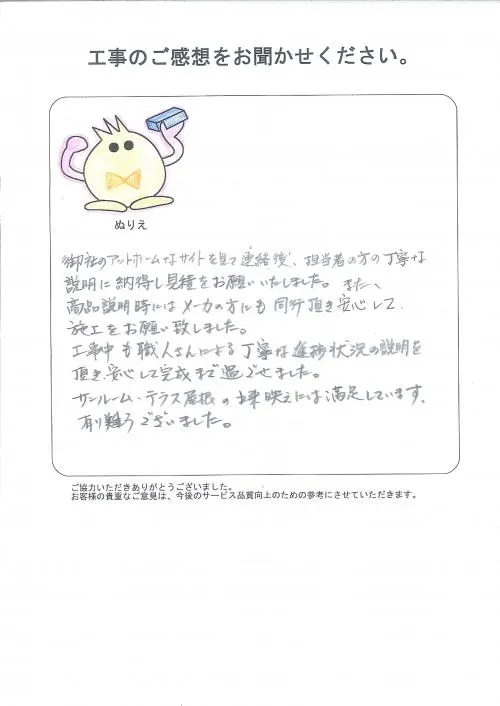 工事のご感想をお聞かせください。
ぬりえ
御社のアットホームなサイトを見て連絡後、担当者の方の丁寧な
説明に納得し見積をお願いいたしました。また、
商品説明時にはメーカの方にも同行頂き安心して、
施工をお願い致しました。
工事中も職人さんによる丁寧な進捗状況の説明を
頂き、安心して完成まで過ごせました。
サンルーム・テラス屋根の出来映えには満足しています、
有り難うございました。
ご協力いただきありがとうございました。
お客様の貴重なご意見は、今後のサービス品質向上のための参考にさせていただきます。